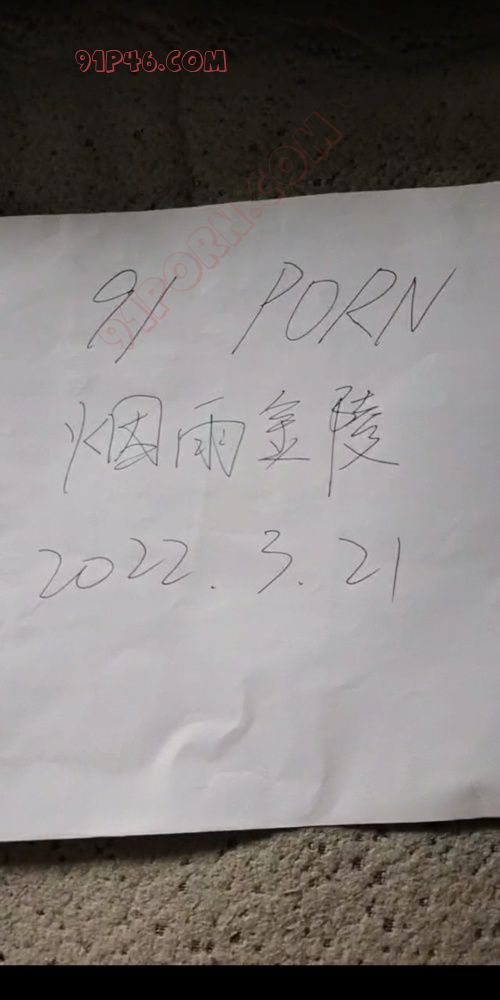 91P46.COM
91PORN.COM
91 PORN
烟雨金陵
2022.3.21